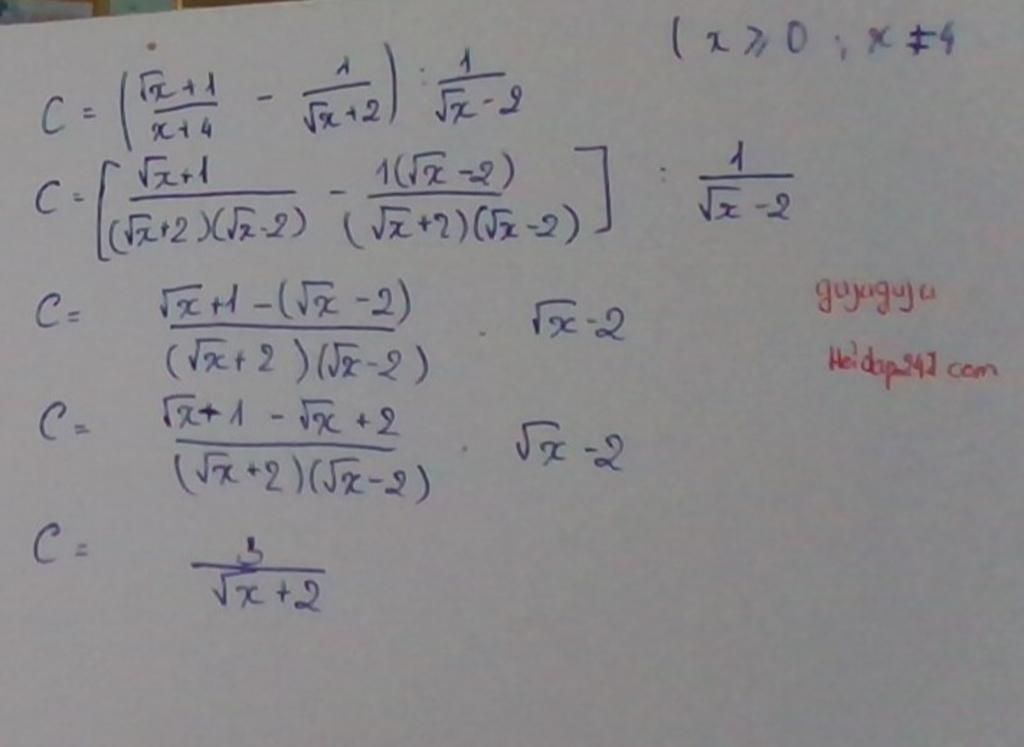 ( x ⩾ 0 ; x ≠ 4
C = ( (√x + 1)/(x + 4) - 1/(√x + 2) ) : 1/(√x - 2)
C = [ (√x + 1)/((√x + 2)(√x - 2)) - 1(√x - 2)/((√x + 2)(√x - 2)) ] : 1/(√x - 2)
C = (√x + 1 - (√x - 2))/((√x + 2)(√x - 2)) . √x - 2
gujuguju
Hoidap247 com
C = (√x + 1 - √x + 2)/((√x + 2)(√x - 2)) . √x - 2
C = 3/(√x + 2)